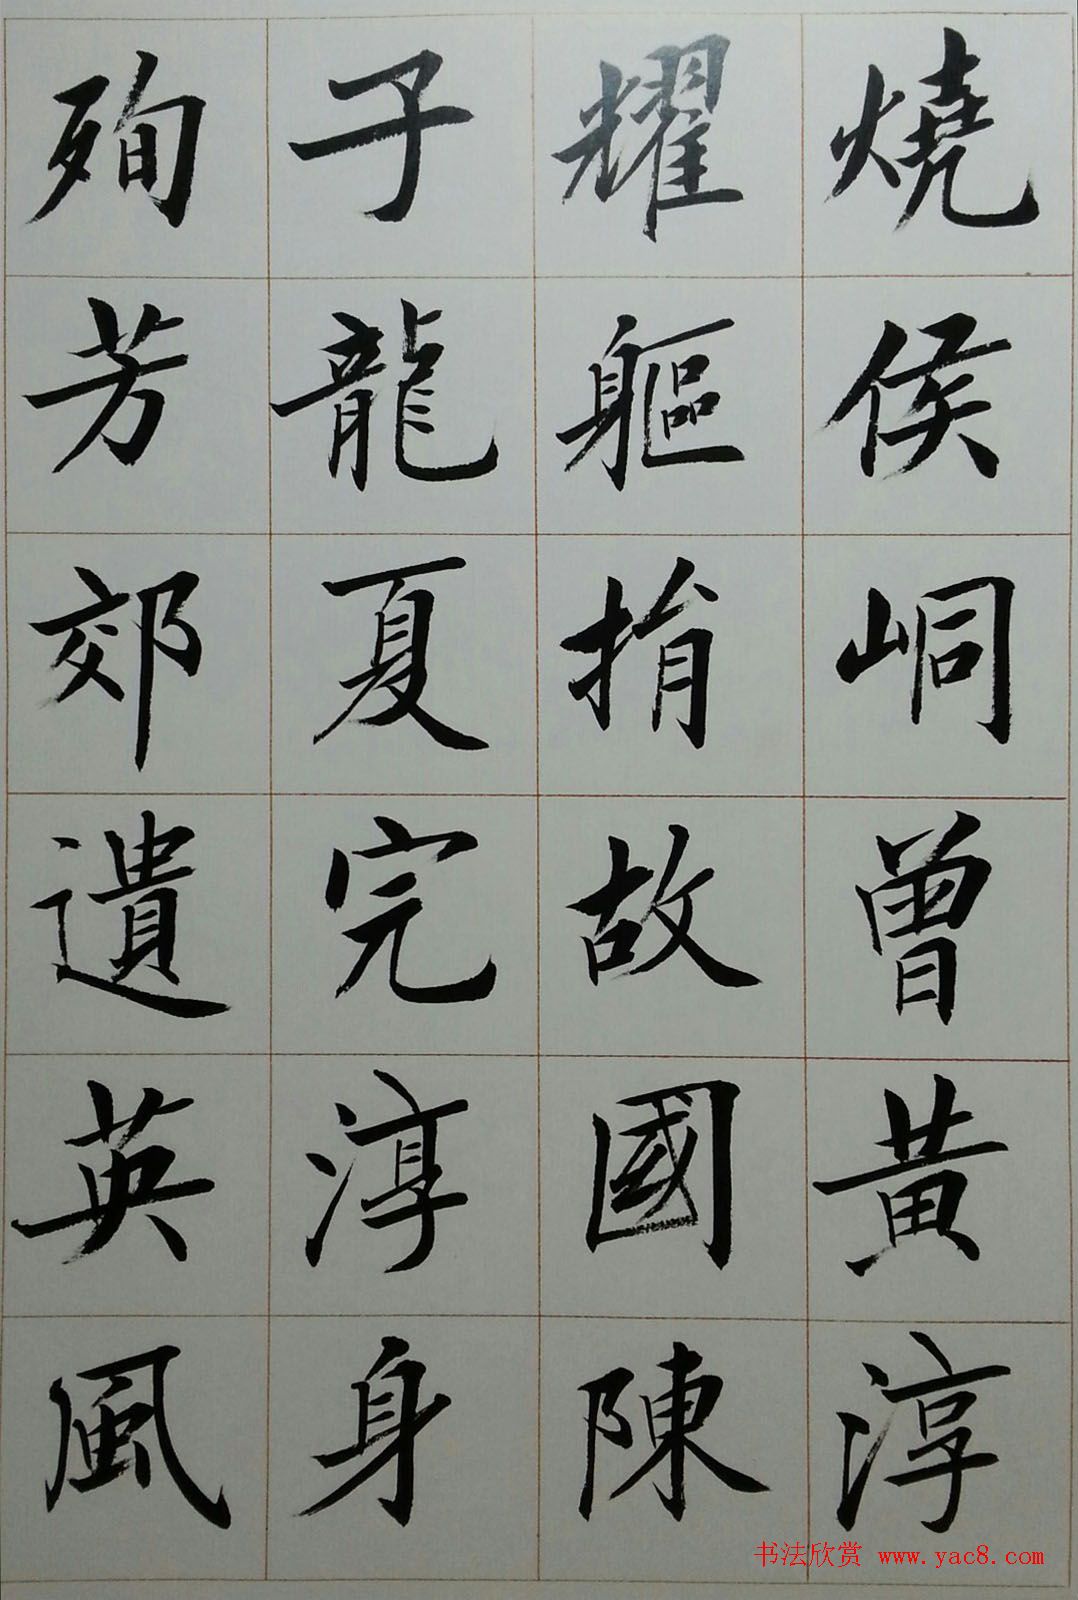 燒侯峒曾黃淳
耀軀捐故國陳
子龍夏完淳身
殉芳郊遺英風
书法欣赏 www.yac8.com